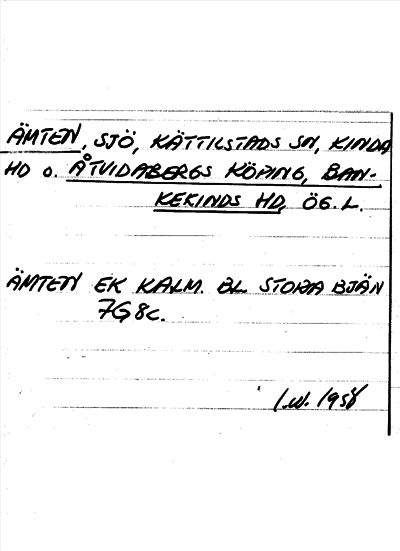 ÄMTEN, SJÖ, KÄTTILSTADS SN, KINDA
HD O. ÅTVIDABERGS KÖPING, BAN-
KEKINDS HD, ÖG. L.
ÄMTEN EK KALM. BL STORA BJÄN
7G8c.
I.W. 1958